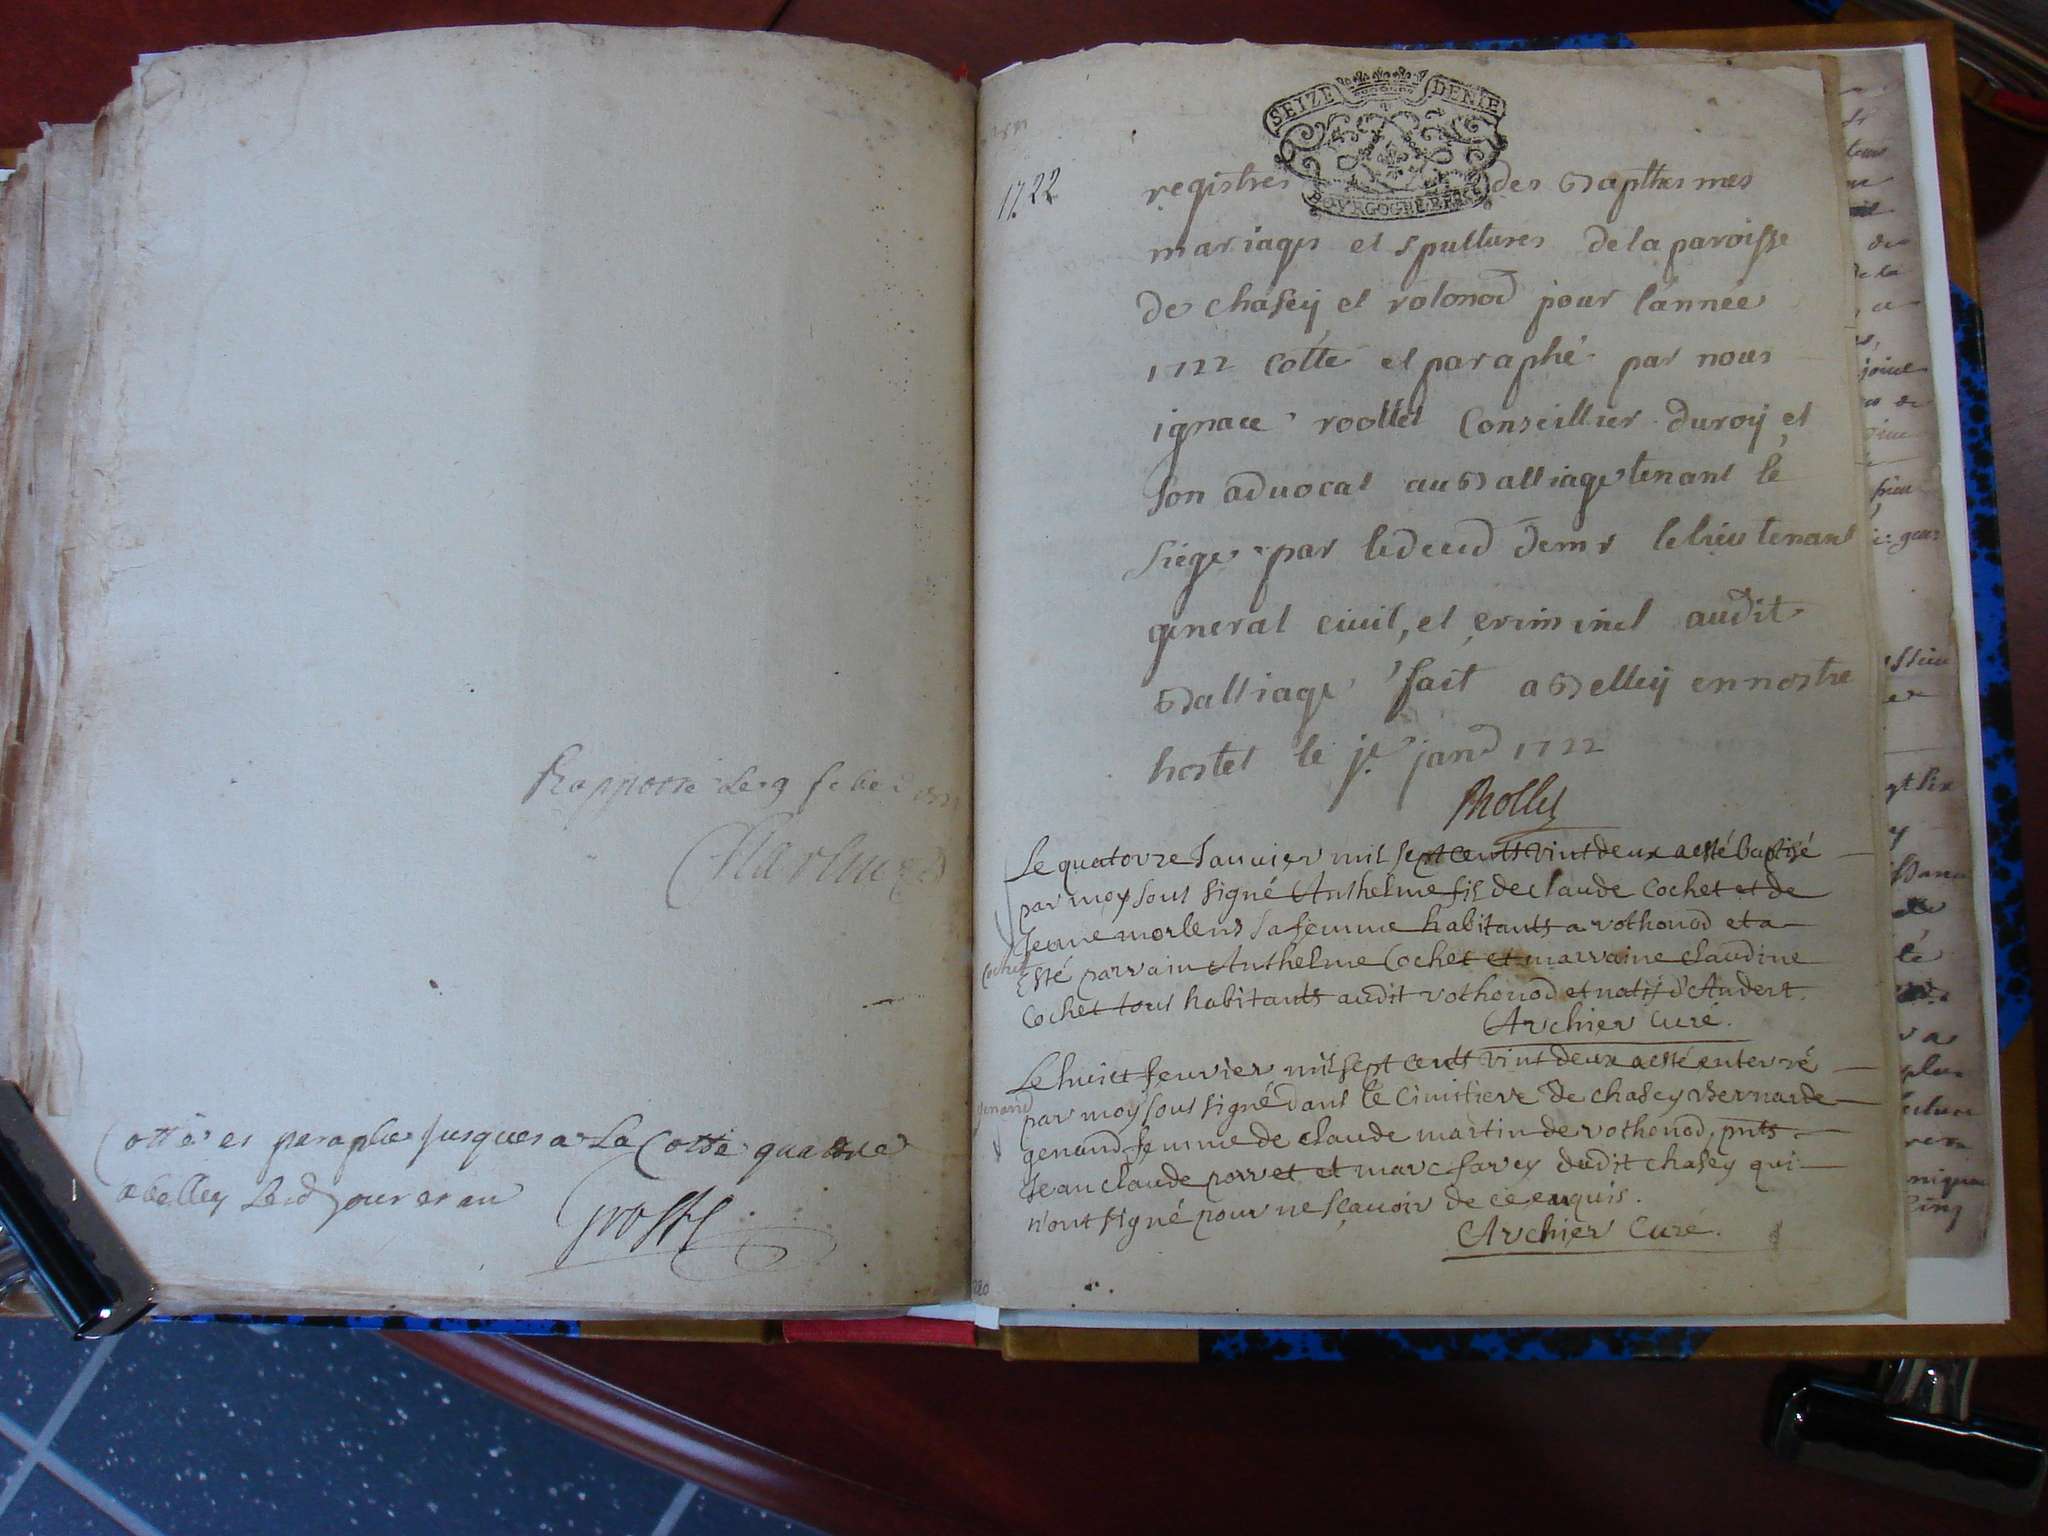 Rapporté le 9 febr
Cotté et paraphé jusques a La Cotte quattre
a belley Led jour et an
Grosset
1722
SEIZE DENIE
registres des Baptesmes
BOVRGOGNE
mariages et spultures de la paroisse
de chasey et rotonod pour l'année
1722 cotté et paraphé par nous
ignace rollet Conseillier du roy et
son aduocat au Balliage tenant le
siege par ledeced de mr le lieutenant
general ciuil, et criminel audit
Balliage fait a Belley en nostre
hostel le je janv 1722
Rollet
Le quatorze Januier mil sept cents vint deux a esté baptisé
par moy sous signé Anthelme fils de claude Cochet et de
Jeanne morlens sa femme habitants a vothonod et a
Cochet
Esté parrain Anthelme Cochet et marraine claudine
Cochet tous habitants audit vothonod et natif d'Andert.
Archier Curé.
Le huict feuvrier mil sept cents vint deux a esté enterré
genand
par moy sous signé dans le cimitiere de chasey Bernarde
genand femme de claude martin de vothonod, pnts
Jean claude porret et marc favey dudit chasey qui
n'ont signé pour ne sçauoir de ce enquis.
Archier Curé.